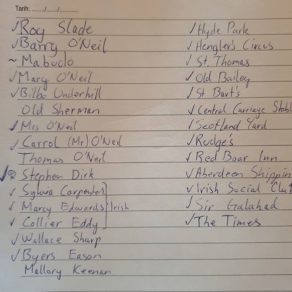 Tarih: ..../..../....
✓Roy Slade
✓Barry O'Neil
~Mabuolo
✓Mary O'Neil
✓Bilbo Underhill
Old Sherman
✓Mrs O'Neil
✓Carrol (Mr) O'Neil
Thomas O'Neil
Stephen Dirk
✓Sylwra Carpenter
✓Marcy Edwards Irish
✓Collier Eddy
✓Wallace Sharp
✓Byers Eason
Mallory Keenan
✓Hyde Park
✓Hengler's Circus
✓St. Thomas
✓Old Bailey
✓St Bart's
✓Central Carriage Stabl
✓Scotland Yard
✓Rudge's
✓Red Boar Inn
✓Aberdeen Shippin
✓Irish Social Clu
✓Sir Galahad
✓The Times